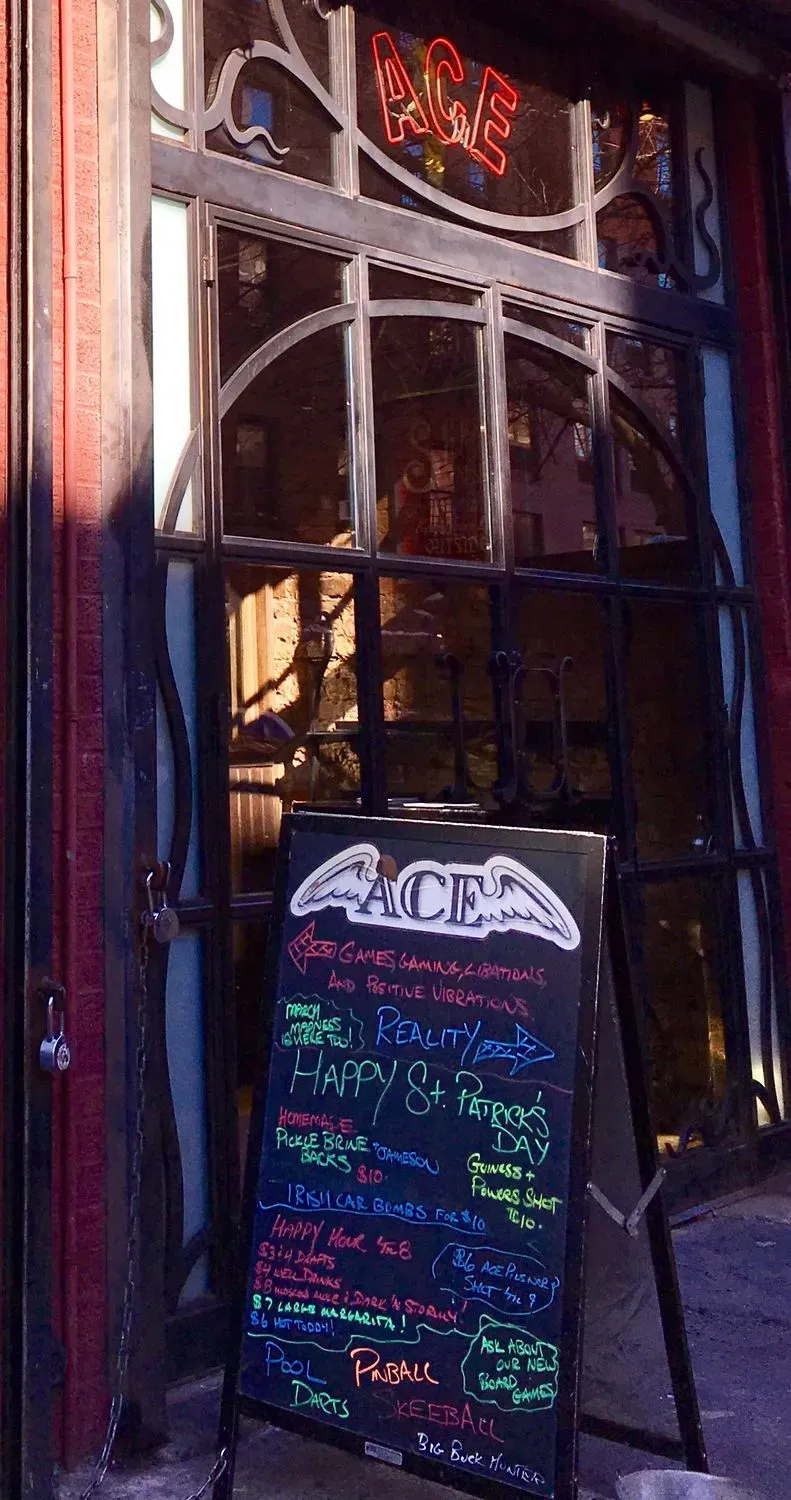 ACE
ACE
GAMES GAMING, LIBATIONS,
AND POSITIVE VIBRATIONS.
MARCH
MADNESS
IS HERE TOO!
REALITY
HAPPY St. PATRICK'S
DAY
HOMEMADE
PICKLE BRINE
BACKS
JAMESON
$10.
GUINESS +
POWERS SHOT
$10.
IRISH CAR BOMBS FOR $10
HAPPY HOUR 'TIL 8
$3 & 4 DRAFTS
$4 WELL DRINKS
$8 MOSCOW MULE & DARK 'N STORMY!
$7 LARGE MARGARITA!
$6 HOT TODDY!
$6 ACE PILSNER &
SHOT 'TIL 9
ASK ABOUT
OUR NEW
BOARD
GAMES
POOL
PINBALL
DARTS
SKEEBALL
BIG BUCK HUNTER